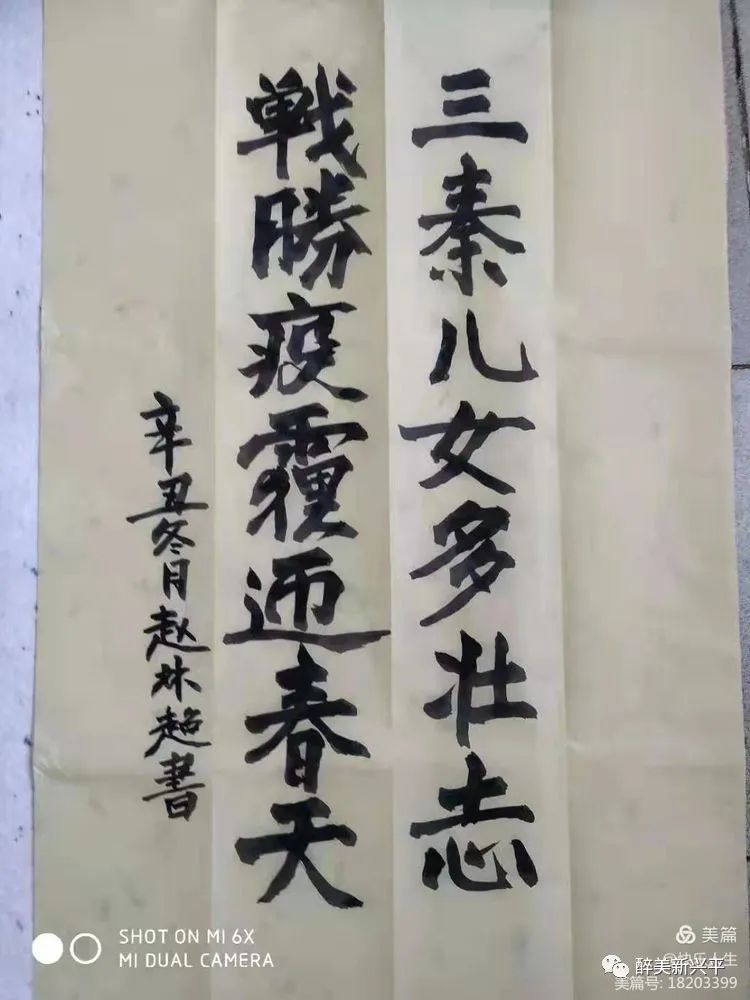 三秦儿女多壮志
戦勝疫霾迎春天
辛丑冬月赵林超书
SHOT ON MI 6X
MI DUAL CAMERA
美篇
醉美新兴平
美篇号: 18203399